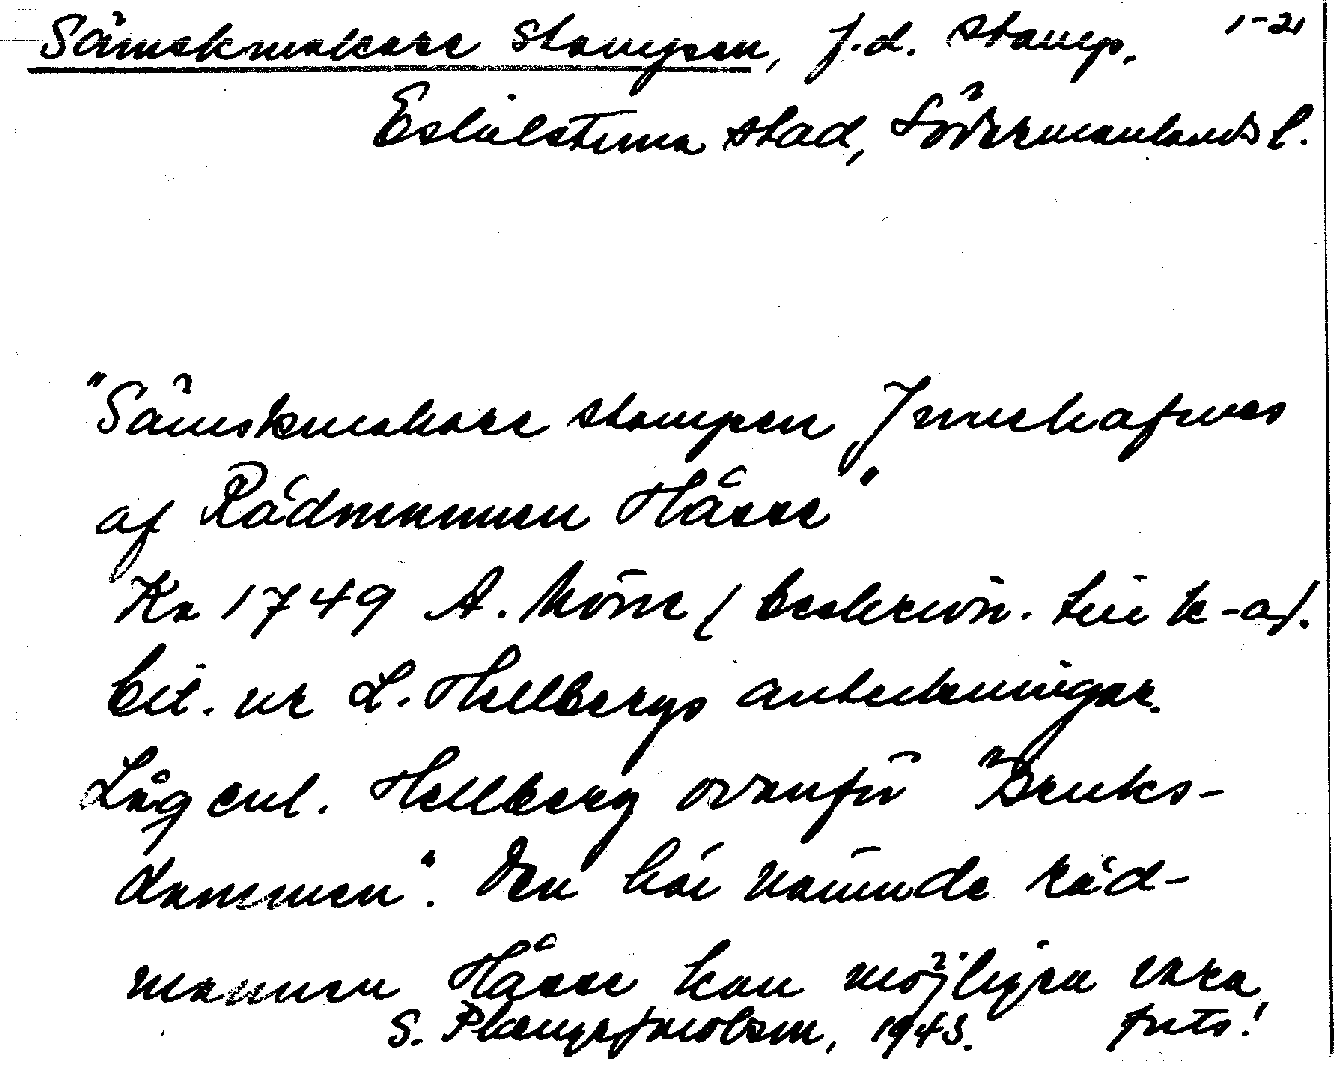 Sämskmakare Stampen, f.d. stamp. 1-21
Eskilstuna stad, Södermanlands l.
"Sämskmakare stampen Innehafwes
af Rådmannen Håsse"
Ka 1749 A. / beskrivn. till k-a/.
bil. ur L. Hellbergs anteckningar.
Låg enl. Hellberg ovanför "Bruks-
dammen". Den här nämnde råd-
mannen Håsse kan möjligen vara
S. 1943. forts!